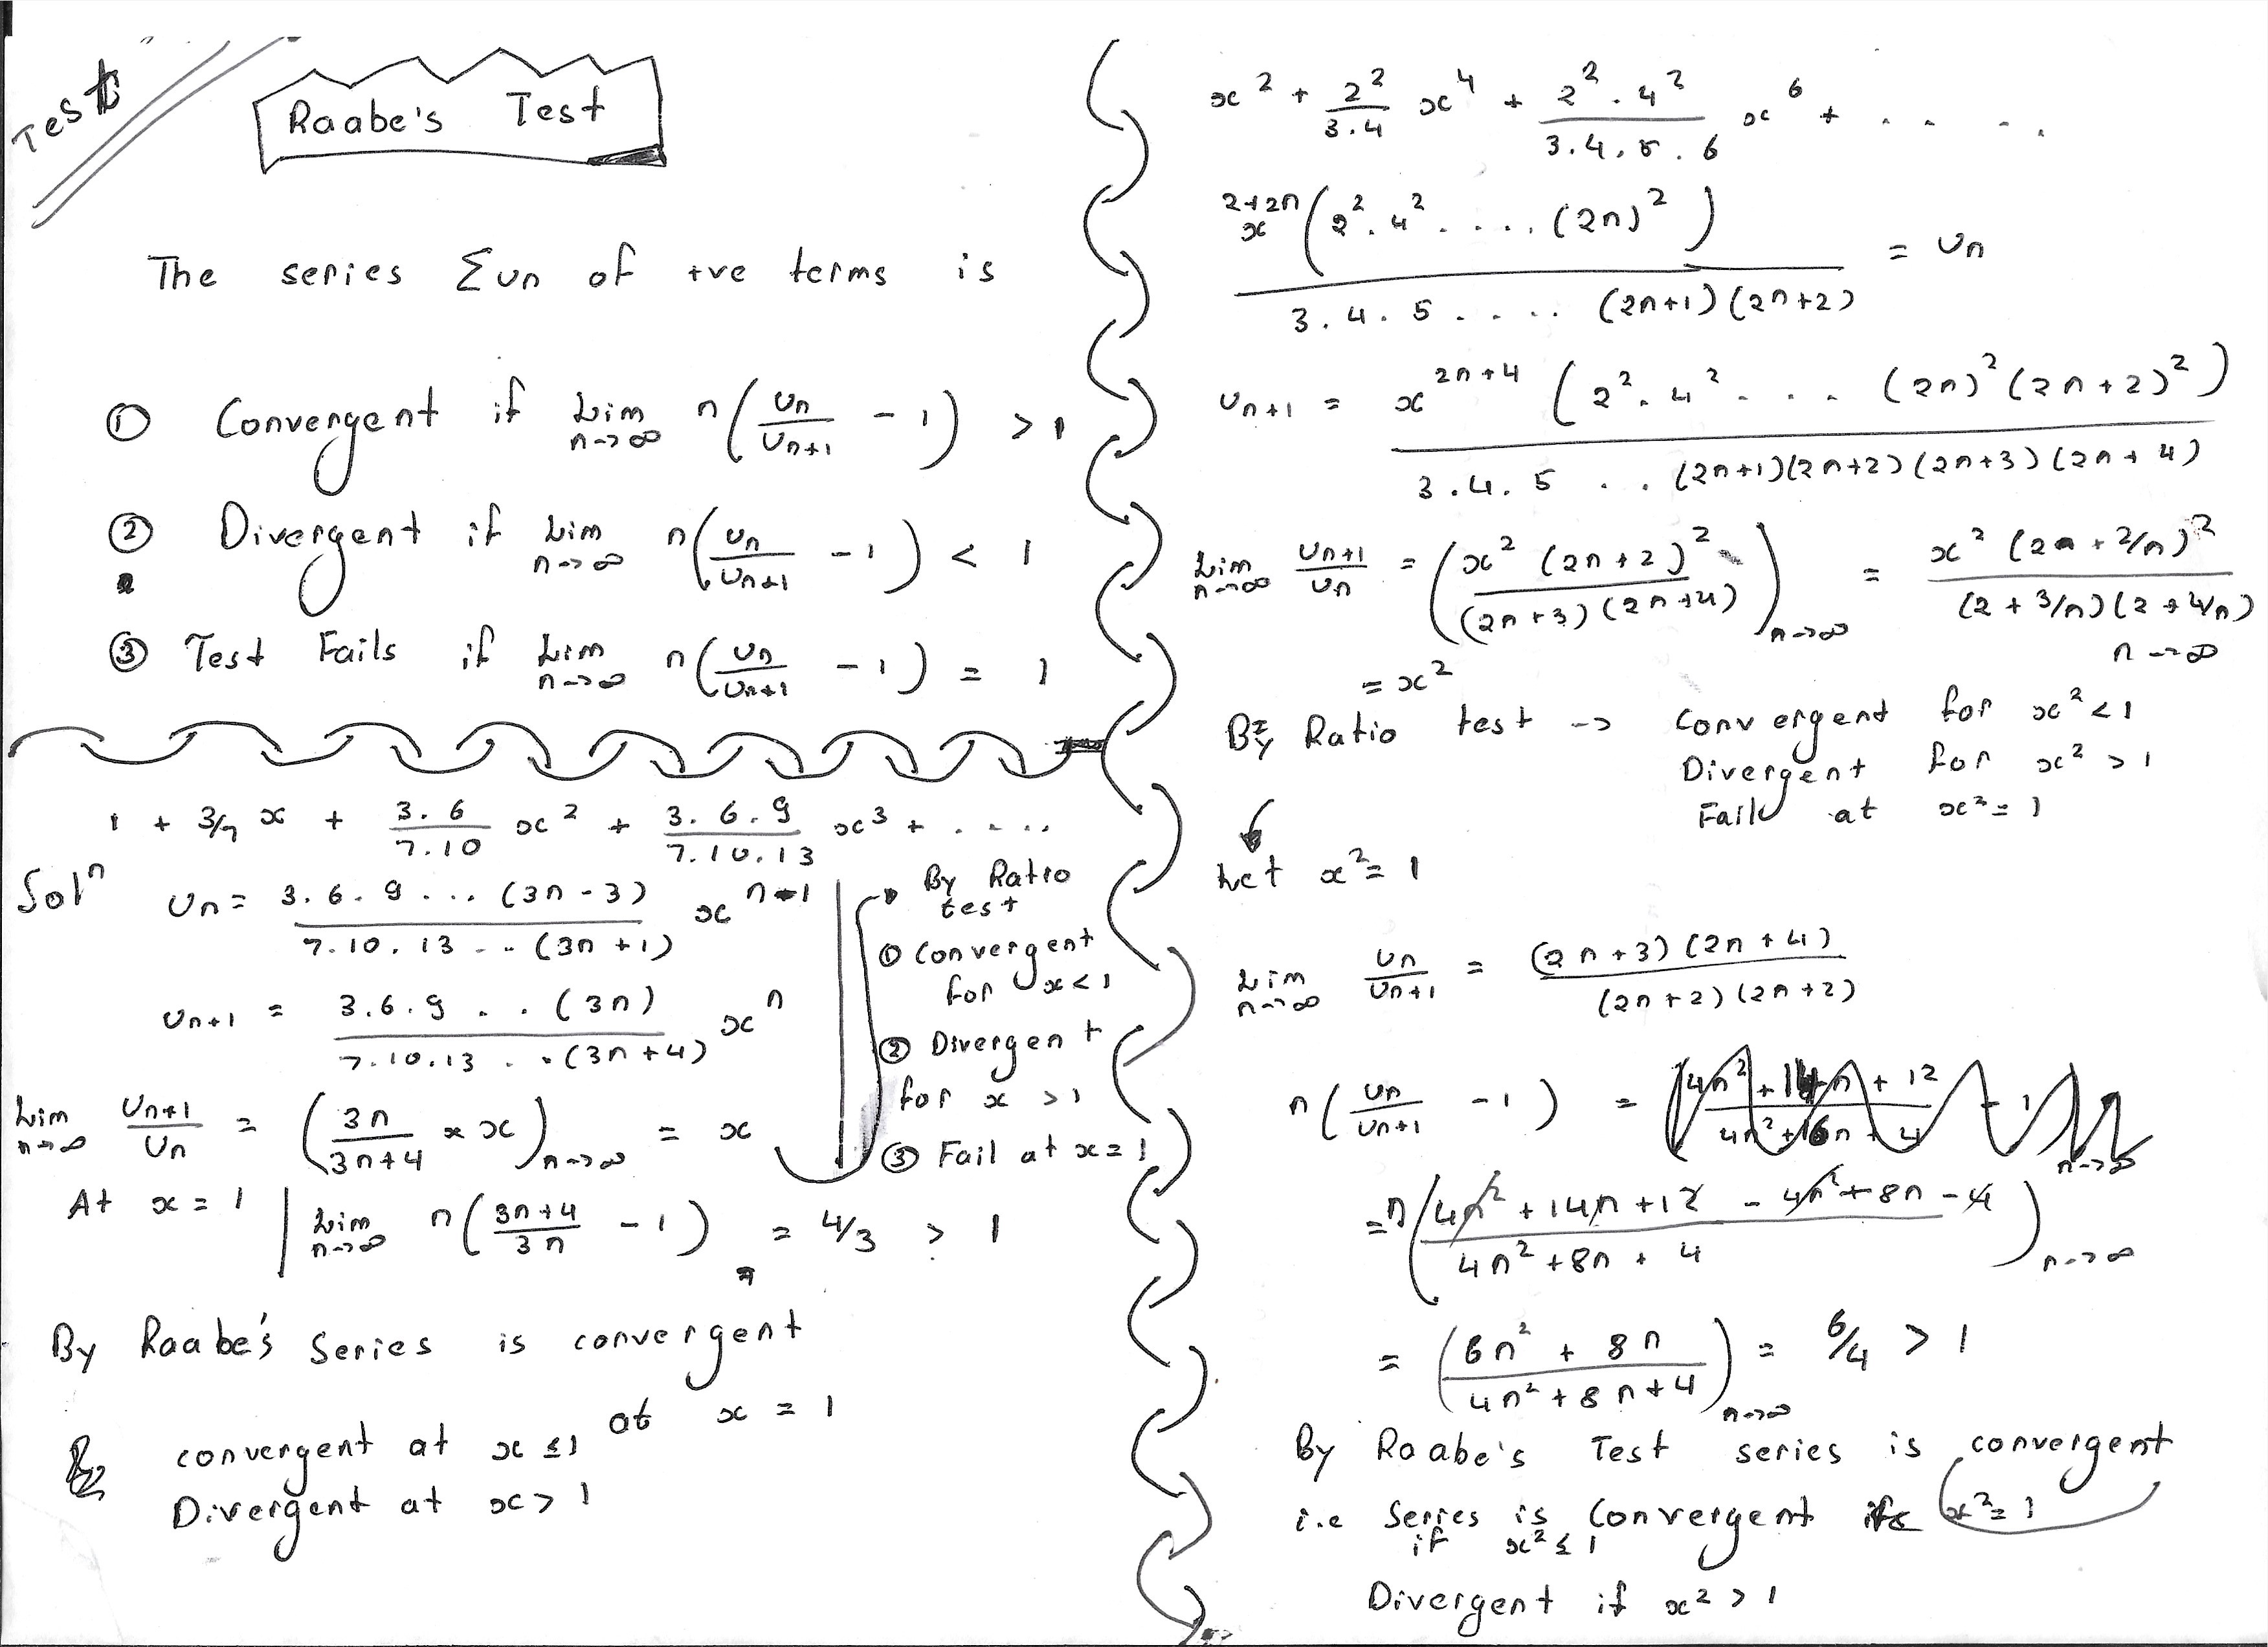 Test
Raabe's Test
The series Σun of +ve terms is
① Convergent if Lim n→∞ n(un/un+1 - 1) > 1
② Divergent if Lim n→∞ n(un/un+1 - 1) < 1
③ Test Fails if Lim n→∞ n(un/un+1 - 1) = 1
1 + 3/7 x + 3.6/7.10 x² + 3.6.9/7.10.13 x³ + ....
Solⁿ un = 3.6.9...(3n-3)/7.10.13...(3n+1) xⁿ⁻¹
un+1 = 3.6.9..(3n)/7.10.13..(3n+4) xⁿ
Lim n→∞ un+1/un = (3n/3n+4 × x) n→∞ = x
By Ratio
test
① Convergent
for x<1
② Divergent
for x >1
③ Fail at x=1
At x = 1 | Lim n→∞ n(3n+4/3n - 1) = 4/3 > 1
By Raabe's series is convergent
at x = 1
convergent at x ≤1
Divergent at x> 1
x² + 2²/3.4 x⁴ + 2².4²/3.4.5.6 x⁶ + .....
x²⁺²ⁿ(2².4².....(2n)²)/3.4.5.....(2n+1)(2n+2) = un
un+1 = x²ⁿ⁺⁴(2².4²....(2n)²(2n+2)²)/3.4.5...(2n+1)(2n+2)(2n+3)(2n+4)
Lim n→∞ un+1/un = (x²(2n+2)²/(2n+3)(2n+4)) n→∞ = x²(2+2/n)²/(2+3/n)(2+4/n) n→∞
= x²
By Ratio test → Convergent for x²<1
Divergent for x² >1
Fail at x²=1
Let x²= 1
Lim n→∞ un/un+1 = (2n+3)(2n+4)/(2n+2)(2n+2)
n(un/un+1 - 1) =
= n(4n²+14n+12 - 4n²+8n-4/4n²+8n+4) n→∞
= (6n²+8n/4n²+8n+4) n→∞ = 6/4 > 1
By Raabe's Test series is convergent
i.e series is Convergent x²=1
if x²≤1
Divergent if x²>1